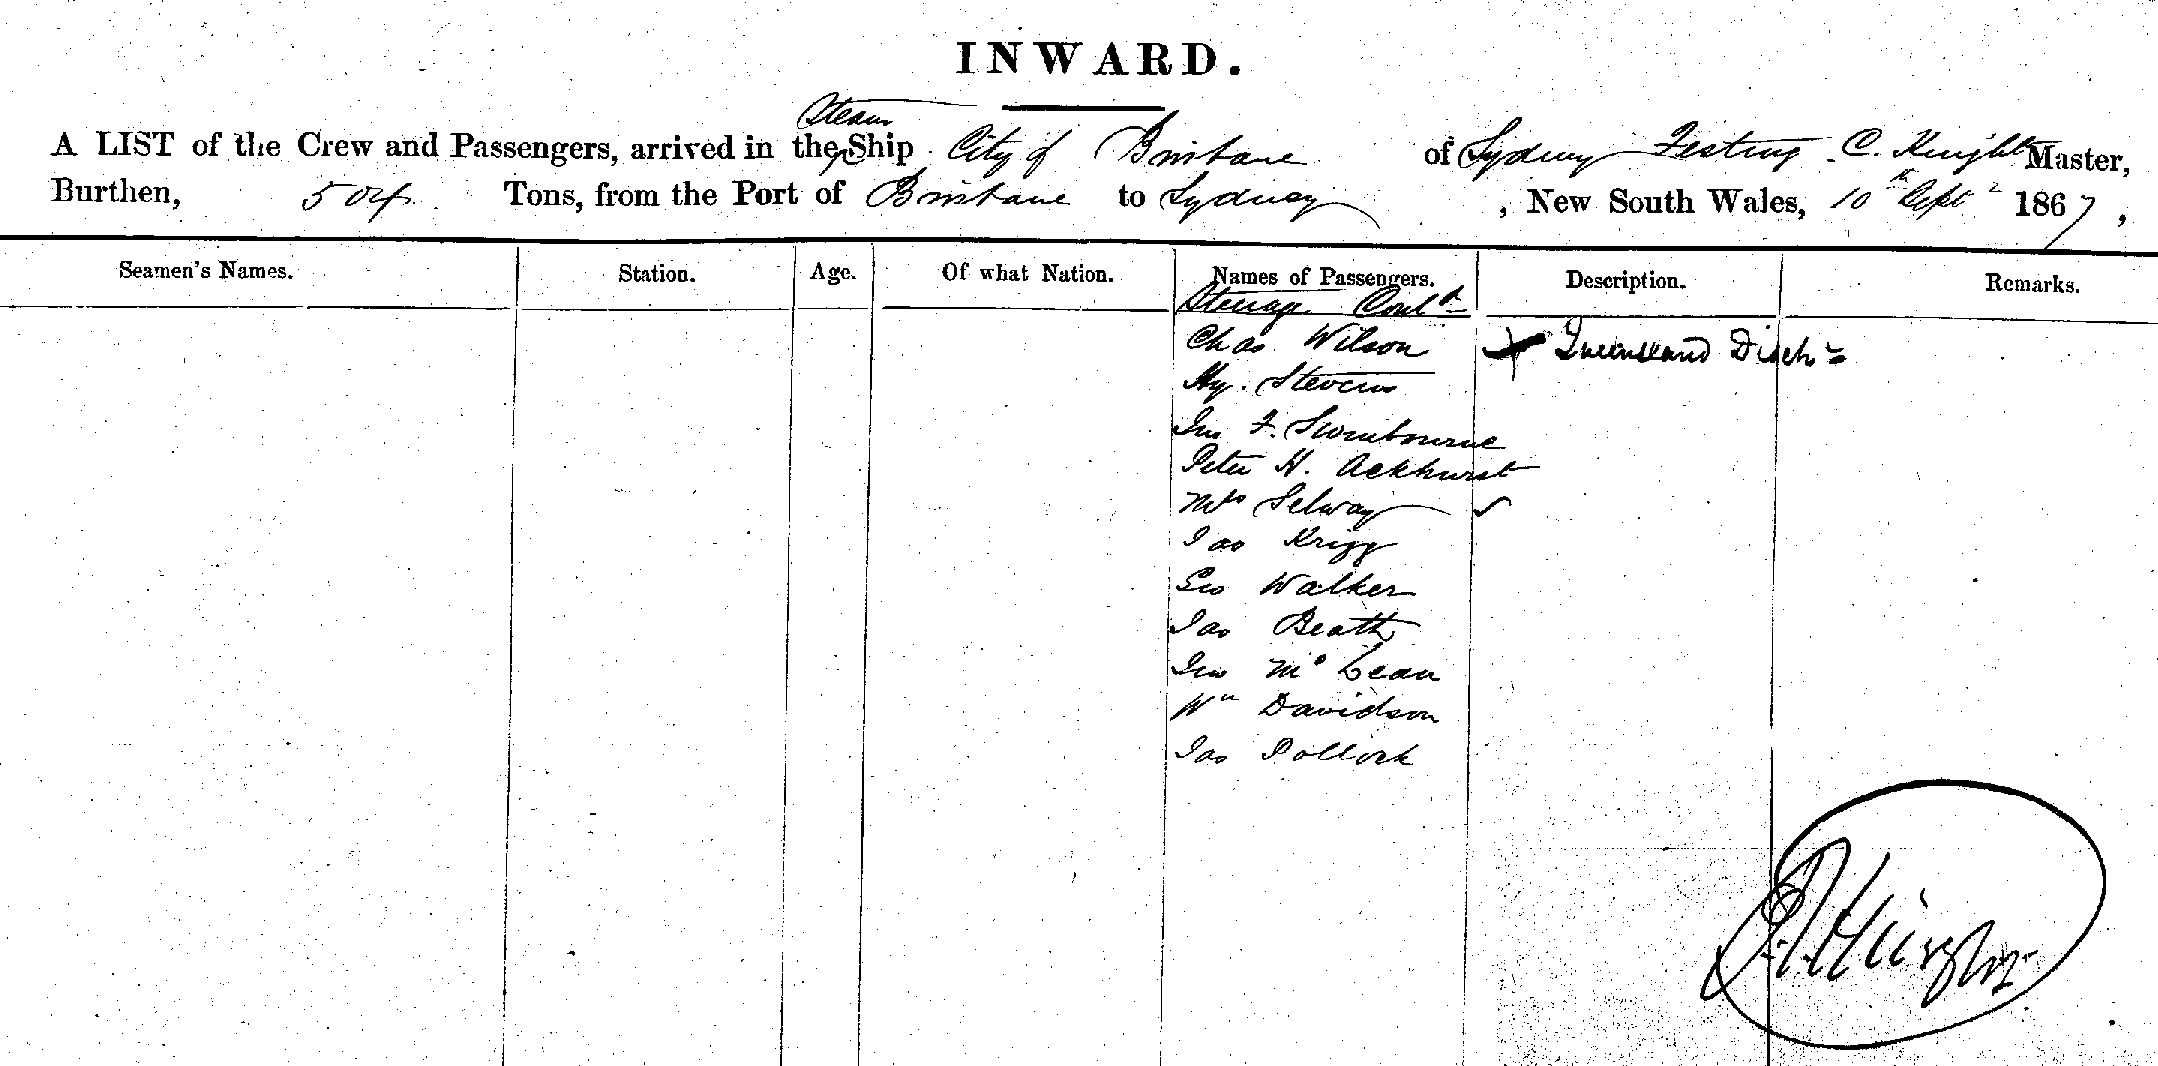 INWARD.
Steam
A LIST of the Crew and Passengers, arrived in the Ship City of Brisbane of Sydney Festing C. Knight Master,
Burthen, 504 Tons, from the Port of Brisbane to Sydney, New South Wales, 10th Sept 1867,
Seamen's Names. Station. Age. Of what Nation. Names of Passengers. Description. Remarks.
Steerage Contd
Chas Wilson Queensland Disch
Hy. Stevens
Jno F. Swinbourne
Peter H. Ackhurst
Mrs Selway ✓
Jas Krigg
Geo Walker
Jas Beath
Jno McLean
Wm Davidson
Jas Pollock